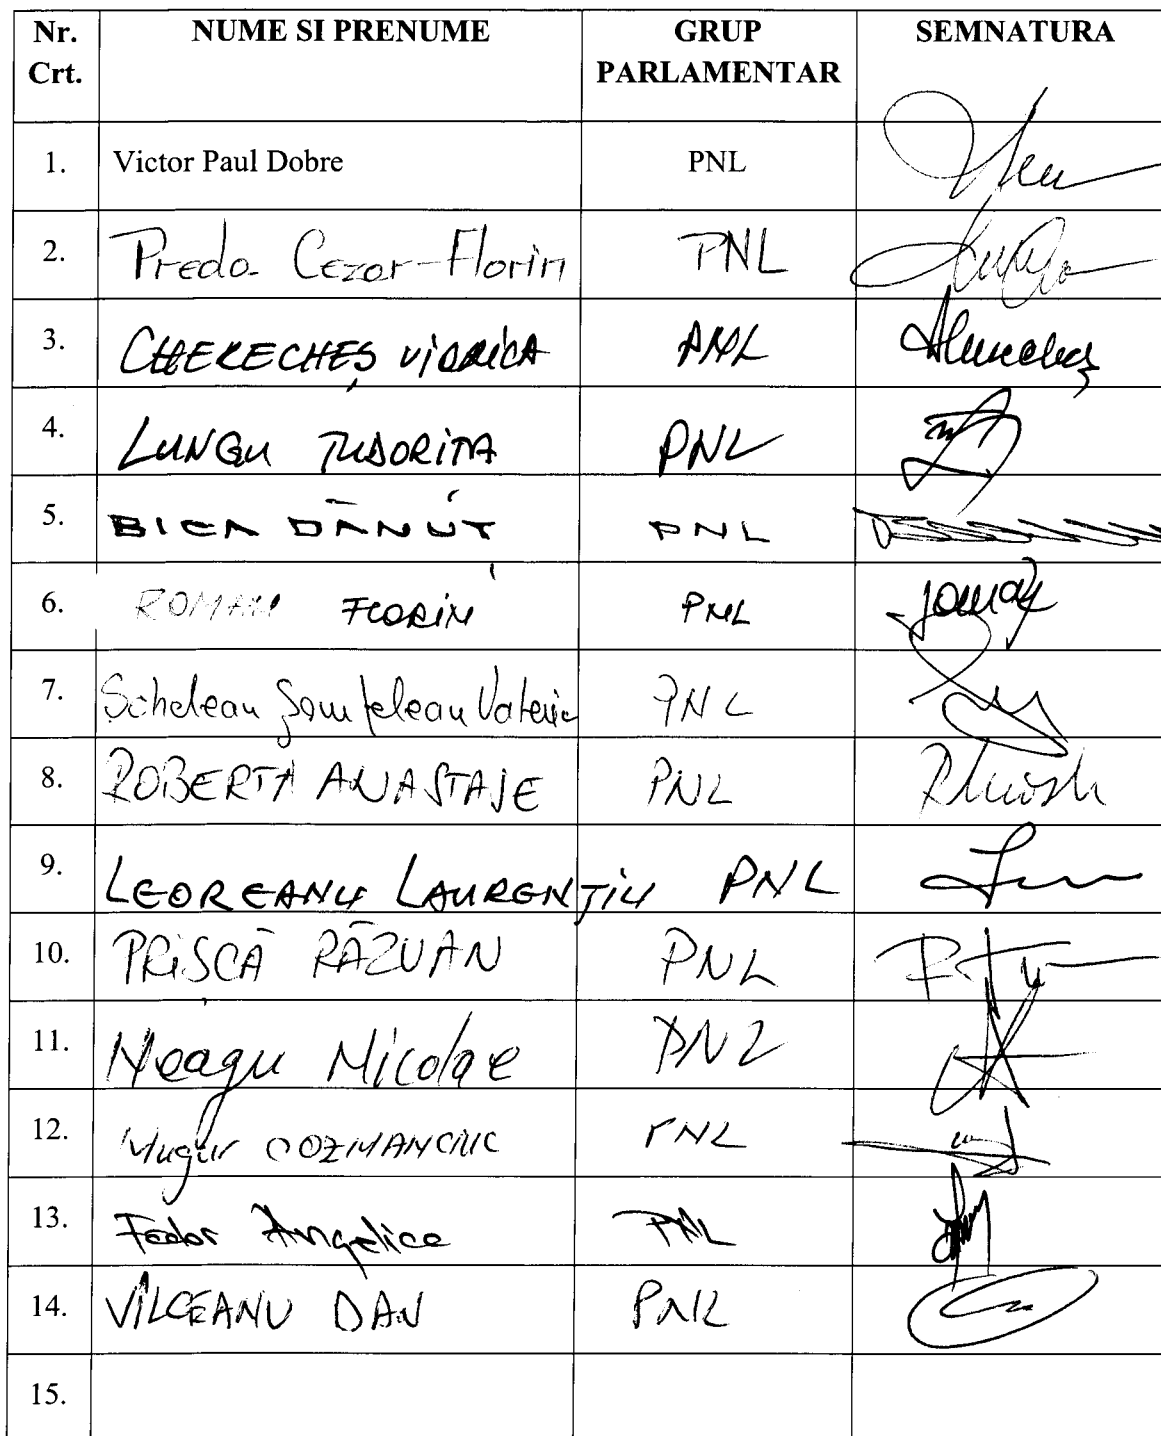 Nr. Crt. NUME SI PRENUME GRUP PARLAMENTAR SEMNATURA
1. Victor Paul Dobre PNL
2. Preda Cezar-Florin PNL
3. CHERECHEȘ VIORICA PNL
4. LUNGU TUDORIȚA PNL
5. BICA DĂNUȚ PNL
6. ROMAN FLORIN PNL
7. Schelean Șomfelean Valeria PNL
8. ROBERTA ANASTASE PNL
9. LEOREANU LAURENȚIU PNL
10. PRISCĂ RĂZVAN PNL
11. Neagu Nicolae PNL
12. Mugur COZMANCIUC PNL
13. Fedor Angelica PNL
14. VILCEANU DAN PNL
15.